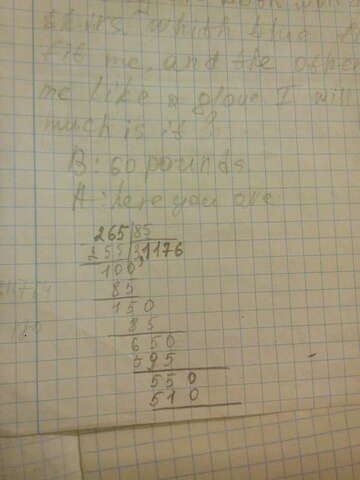 skirs whith blue
fit me, and the
me like a glove I will
much is it?
B: 60 pounds
A: here you are
265 85
255 3,1176
100
85
150
85
650
595
550
510